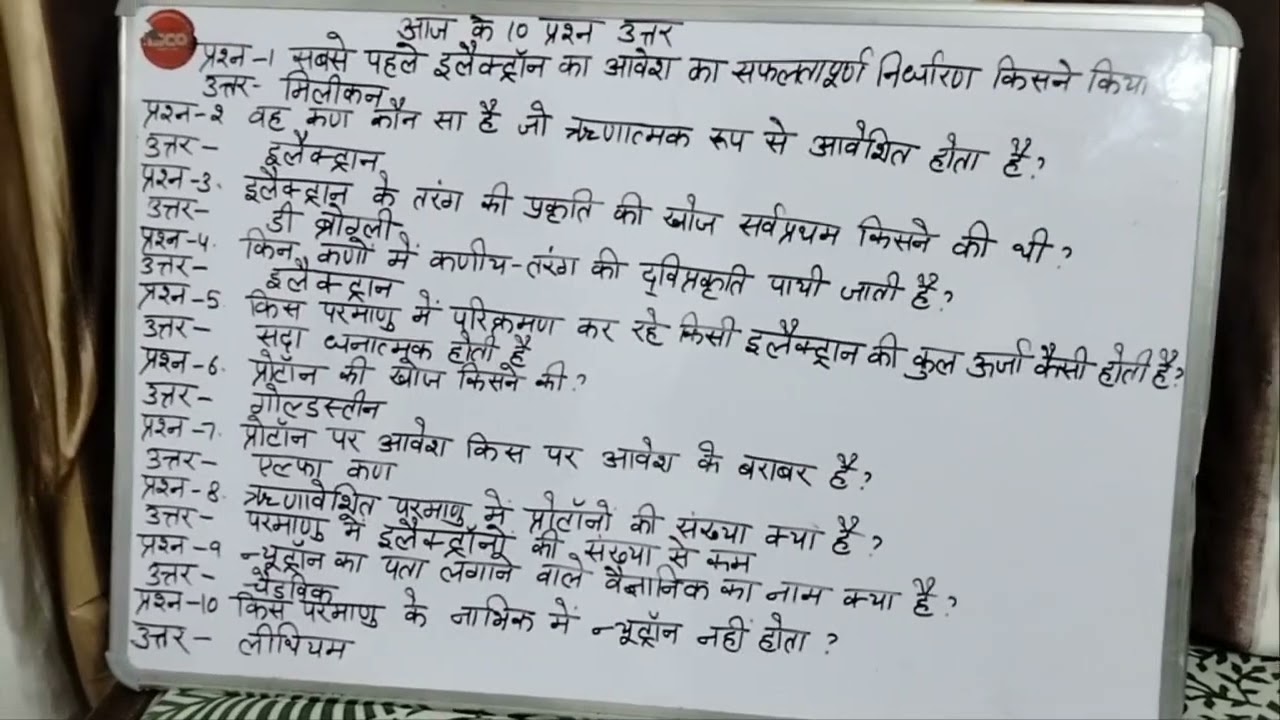 आज के 10 प्रश्न उत्तर
प्रश्न-1 सबसे पहले इलैक्ट्रॉन का आवेश का सफलतापूर्ण निर्धारण किसने किया
उत्तर- मिलीकन
प्रश्न-2 वह कण कौन सा है जो ऋणात्मक रूप से आवेशित होता है?
उत्तर- इलैक्ट्रान
प्रश्न-3. इलैक्ट्रान के तरंग की प्रकृति की खोज सर्वप्रथम किसने की थी?
उत्तर- डी ब्रोग्ली
प्रश्न-4. किन कणों में कणीय-तरंग की द्विप्रकृति पायी जाती है?
उत्तर- इलैक्ट्रान
प्रश्न-5. किस परमाणु में परिक्रमण कर रहे किसी इलैक्ट्रान की कुल ऊर्जा कैसी होती है?
उत्तर- सदा धनात्मक होती है
प्रश्न-6. प्रोटॉन की खोज किसने की?
उत्तर- गोल्डस्तीन
प्रश्न-7. प्रोटॉन पर आवेश किस पर आवेश के बराबर है?
उत्तर- एल्फा कण
प्रश्न-8. ऋणावेशित परमाणु में प्रोटॉनों की संख्या क्या है?
उत्तर- परमाणु में इलैक्ट्रॉनों की संख्या से कम
प्रश्न-9 न्यूट्रॉन का पता लगाने वाले वैज्ञानिक का नाम क्या है?
उत्तर- चैडविक
प्रश्न-10 किस परमाणु के नाभिक में न्यूट्रॉन नहीं होता?
उत्तर- लीथियम